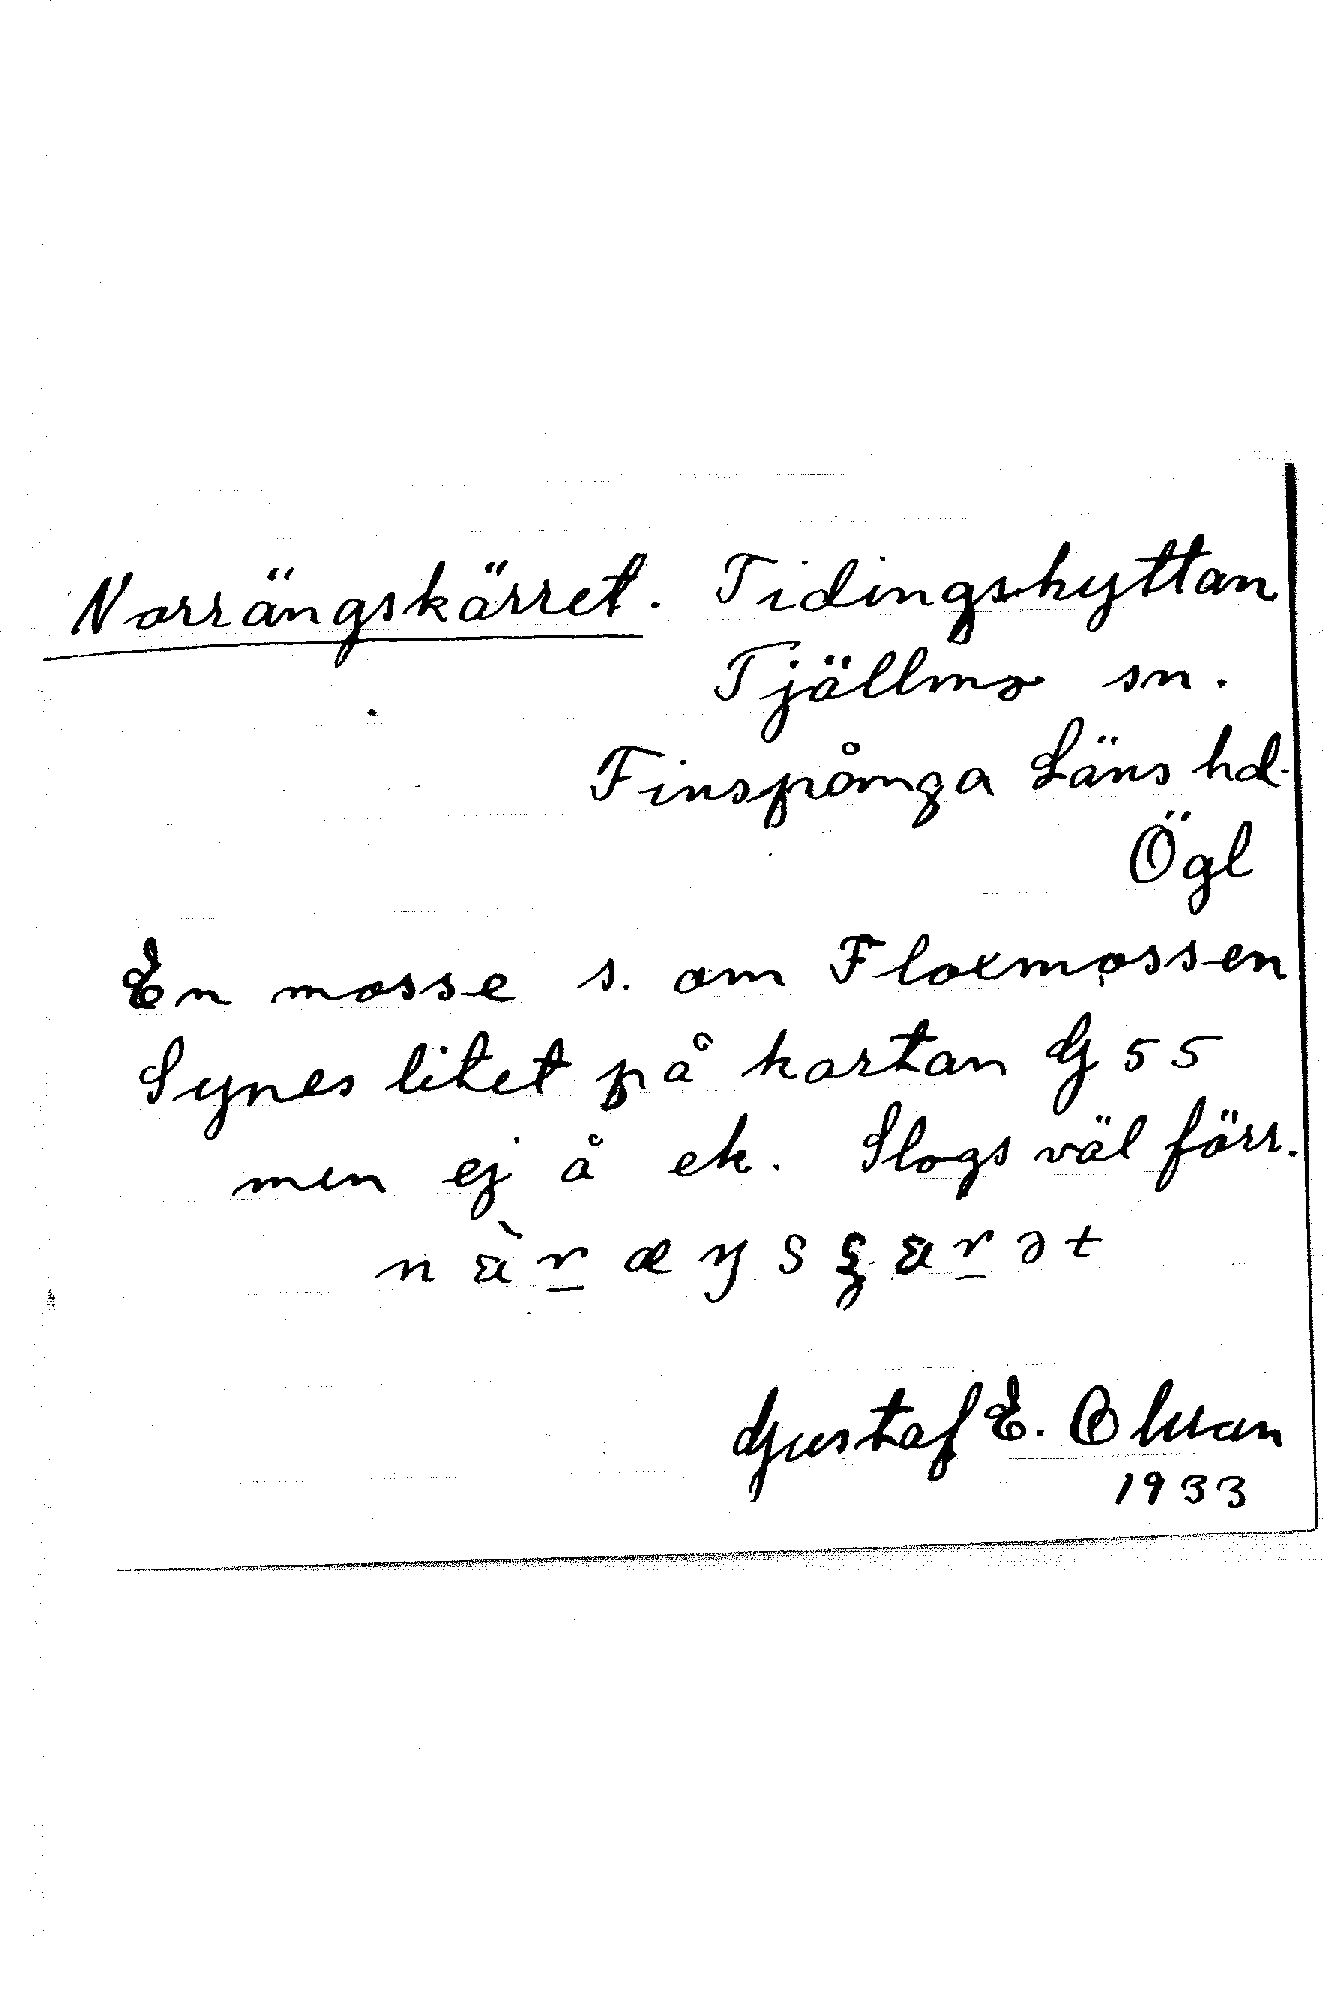 Norrängskärret. Tidingshyttan
Tjällmo sn.
Finspånga Läns hd.
Ögl
En mosse s. om Floxmossen
Synes litet på kartan G 55
men ej å ek. Slogs väl förr.
Gustaf E. Olsson
1933